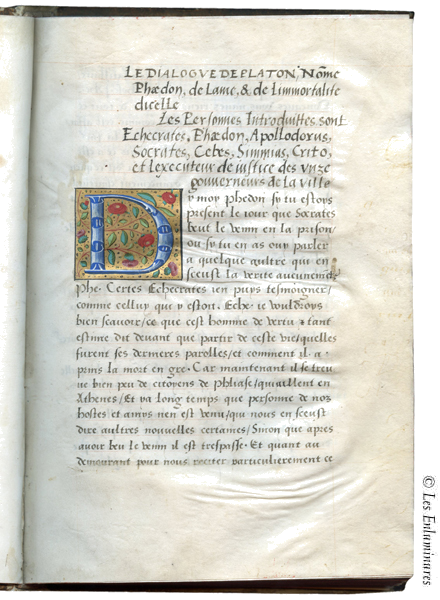 LE DIALOGVE DE PLATON, Nōme
Phædon, de Lame, & de Limmortalite
dicelle
Les Personnes Introduittes sont
Echecrates, Phædon, Apollodorus,
Socrates, Cebes, Simmias, Crito,
et Lexecuteur de iustice des vnze
gouuerneurs de la ville
Dy moy Phedon sy tu estoys
present le iour que Socrates
beut le venin en la prison/
ou sy tu en as ouy parler
a quelque aultre qui en
sceust la verite aucunemēt
phe. Certes Echecrates ien puys tesmoigner/
comme celluy qui y estoit. Eche. ie vouldroys
bien scauoir/ce que cest homme de vertu & tant
estime dit deuant que partir de ceste vie/quelles
furent ses dernieres parolles/et comment il a
pins la mort en gre. Car maintenant il se treu
ue bien peu de citoyens de Phliase/qui aillent en
Athenes/Et ya long temps que personne de noz
hostes et amys nen est venu/qui nous en sceust
dire aultres nouuelles certaines/Sinon que apres
auoir beu le venin il est trespasse. Et quant au
demourant pour nous reciter particulierement ce
© Les Enluminures